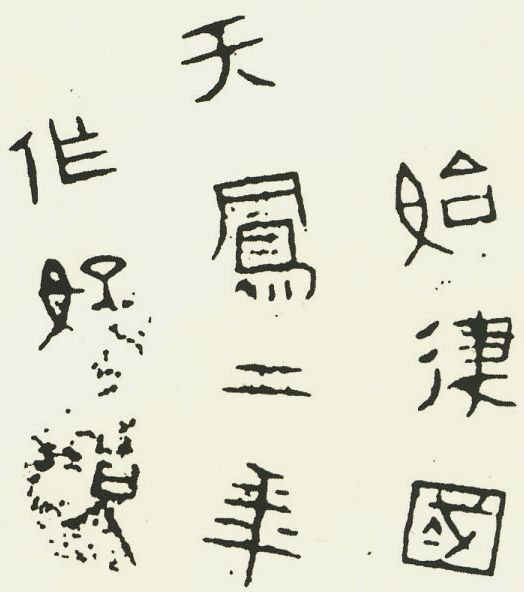 始建國
天鳳二年
作好鏡